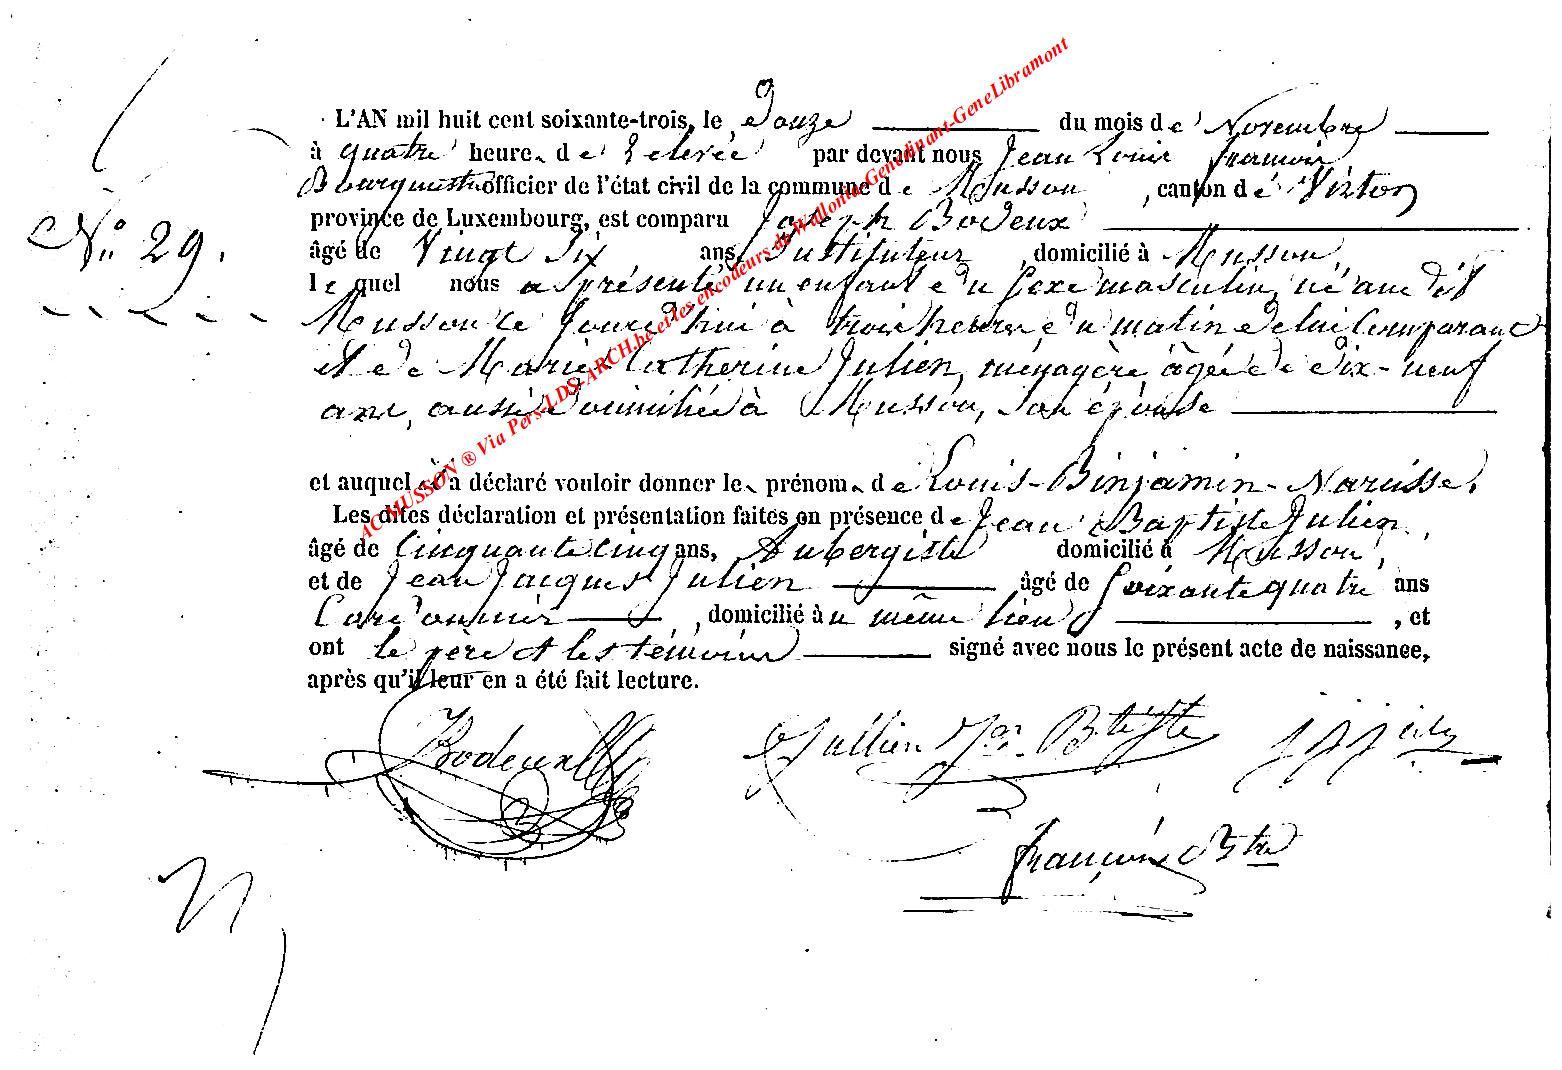 L'AN mil huit cent soixante-trois, le Douze du mois de Novembre
à quatre heures de relevée par devant nous Jean Louis François
officier de l'état civil de la commune de Musson, canton de Virton
N° 29.
province de Luxembourg, est comparu Joseph Bodeux
âgé de Vingt Six ans, Instituteur, domicilié à Musson
le quel nous a présenté un enfant du sexe masculin, né au dit
Musson ce jourd'hui à trois heures du matin de lui Comparant
et de Marie Catherine Julien, ménagère, âgée de Dix-neuf
ans, aussi domiciliée à Musson, son épouse
et auquel il a déclaré vouloir donner les prénoms de Louis-Binjamin-Narcisse.
Les dites déclaration et présentation faites en présence de Jean Baptiste Julien,
âgé de Cinquante cinq ans, Aubergiste domicilié à Musson,
et de Jean Jacques Julien âgé de Soixante quatre ans
Cordonnier, domicilié au même lieu, et
ont le père et les témoins signé avec nous le présent acte de naissance,
après qu'il leur en a été fait lecture.
JBodeux Jullien Jean Btiste
François Bstre
AC MUSSON ® Via Pers-LDS-ARCH.be et les encodeurs de Wallonia-Genedinant-GeneLibramont